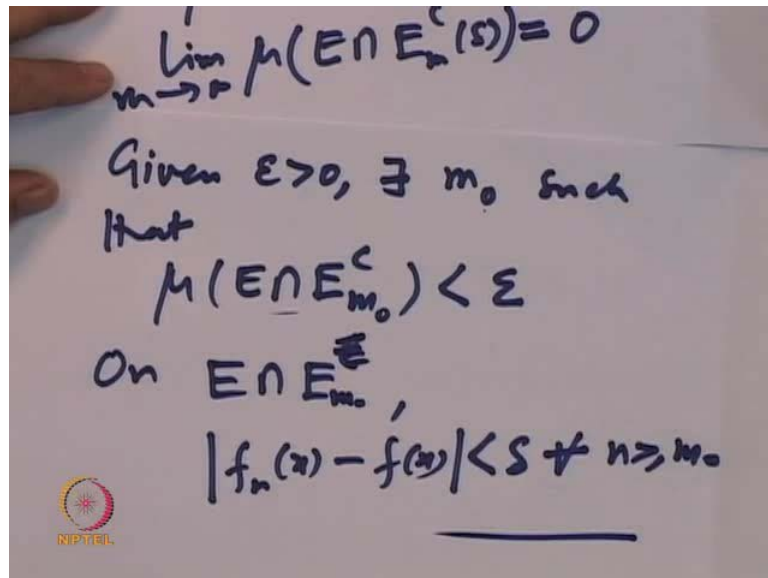 lim μ(E∩E_m^c(δ)) = 0
m→∞
Given ε>0, ∃ m₀ such
that
μ(E∩E_{m₀}^c) < ε
On E∩E_{m₀},
|f_n(x) − f(x)| < δ ∀ n≥m₀
NPTEL